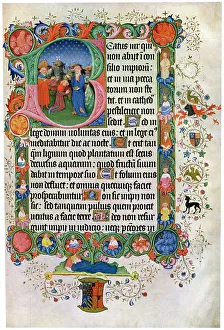 Beatus vir qui
non abijt in con
silio impiorū:
et in via pecca
torum non ste
tit: et in cathed
Pestilencie non
sedit: Sed in
lege domini voluntas eius: et in lege ei
meditabitur die ac nocte. Et erit tan
quam lignum quod plantatum est secus
decursus aquarum: quod fructū suum
dabit in tempore suo Et folium eius
non defluet: et omnia quecumque faciet
prosperabuntur Non sic impij non
sic: sed tamquam pulvis quem proicit
ventus a facie terre Ideo non resur
gent impij in iudicio: neque pctores in